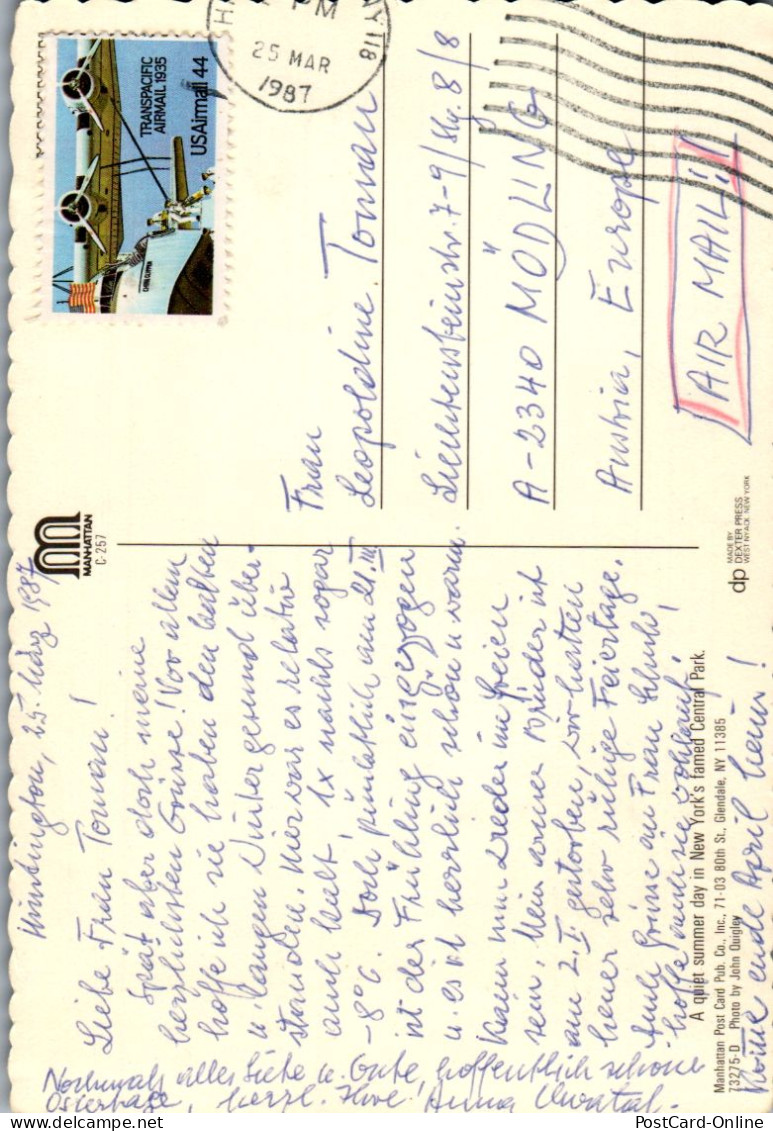 Huntington, 25. März 1987
Liebe Frau Toman!
Spät aber doch meine
herzlichsten Grüsse! Vor allem
hoffe ich sie haben den kalten
u. langen Winter gesund über-
standen. Hier war es relativ
auch kalt, 1x nachts sogar
-8°C. Doch pünktlich am 21. III
ist der Frühling eingezogen
u. es ist herrlich schön u. warm.
Kann nun wieder im Freien
sein. Mein armer Bruder ist
am 2. I. gestorben, wir hatten
heuer sehr ruhige Feiertage.
Auch Grüsse an Frau
hoffe auch sie wohlauf!
Komme ende April heim!
Nochmals alles Liebe u. Gute, hoffentlich schöne
Ostertage, herzl. Ihre Anna
MANHATTAN
C-257
A quiet summer day in New York's famed Central Park.
Manhattan Post Card Pub. Co., Inc., 71-03 80th St., Glendale, NY 11385
73275-D Photo by John Quigley
MADE BY
dp DEXTER PRESS
WEST NYACK, NEW YORK
PM
25 MAR
1987
118
TRANSPACIFIC
AIRMAIL 1935
USAirmail 44
CHINA CLIPPER
Frau
Leopoldine Toman
Liechtensteinstr. 7-9/Stg. 8/8
A-2340 MÖDLING
Austria, Europe
AIR MAIL!
PostCard-Online